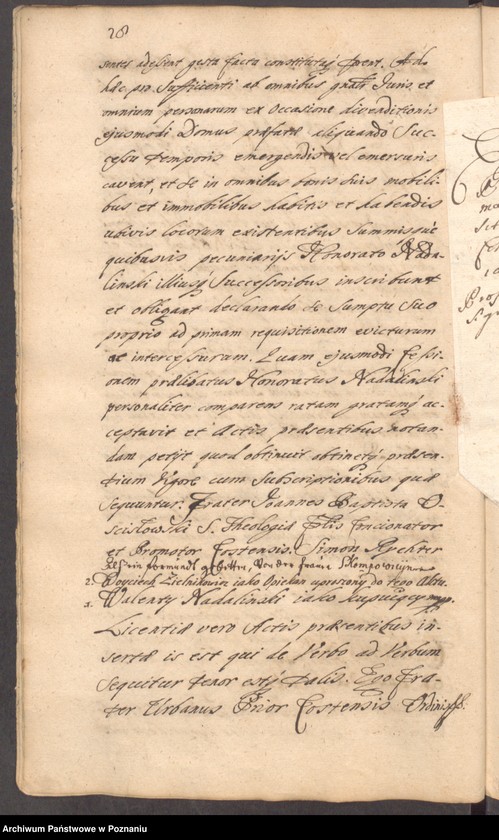 28
sentes adessent gesta facta constitutaq́ forent. Ad
hæc pro sufficienti ab omnibus quatꝰ Juris, et
omnium personarum ex occasione divenditionis
ejusmodi Domus præfatæ aliquando suc-
cessu temporis emergendis vel emersuris
cavent, et se in omnibus bonis suis mobili-
bus et immobilibus habitis et habendis
ubivis locorum existentibus summisq́ue
quibusvis pecuniarijs Honorato Nada-
linski illiusq́ Successoribus inscribunt
et obligant declarando se sumptu suo
proprio ad primam requisitionem evicturum
ac intercessurum. Quam ejusmodi Cessi-
onem prælibatus Honoratus Nadalinski
personaliter comparens ratam gratamq́ ac-
ceptavit et Actis præsentibus notan-
dam petijt quod obtinuit obtinetq́ præsen-
tium Vigore cum subscriptionibus quæ
sequuntur. Frater Joannes Baptista
S. Theologiæ Concionator
et Promotor Costensis. Simon Rychter
als ein formundt gebetten, von der frauen
2. Woyciech Zielnikowic iako Opiekun uproszony do tego Aktu.
1. Walenty Nadalinski iako kupuięcy mpp.
Licentiæ vero Actis præsentibus in-
sertæ is est qui de Verbo ad Verbum
sequitur tenor estq́ talis. Ego Fra-
ter Urbanus Prior Costensis Ordinis
Archiwum Państwowe w Poznaniu